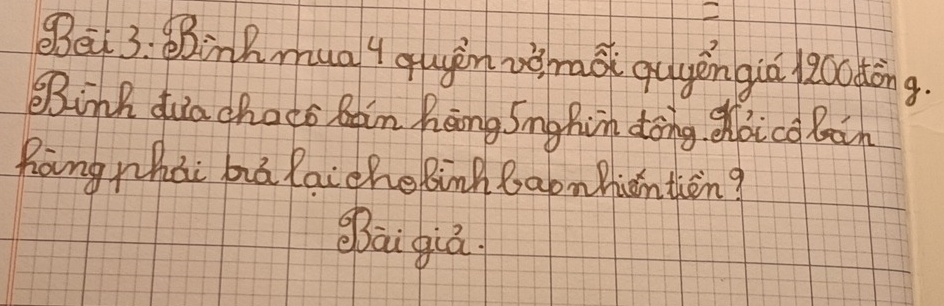 Bài 3: Bình mua 4 quyển vở, mỗi quyển giá 1200 đồng.
Bình đưa cha cô bán hàng 5 nghìn đồng. Hỏi cô bán
hàng phải trả lại cho Bình bao nhiên tiền?
Bài giả.